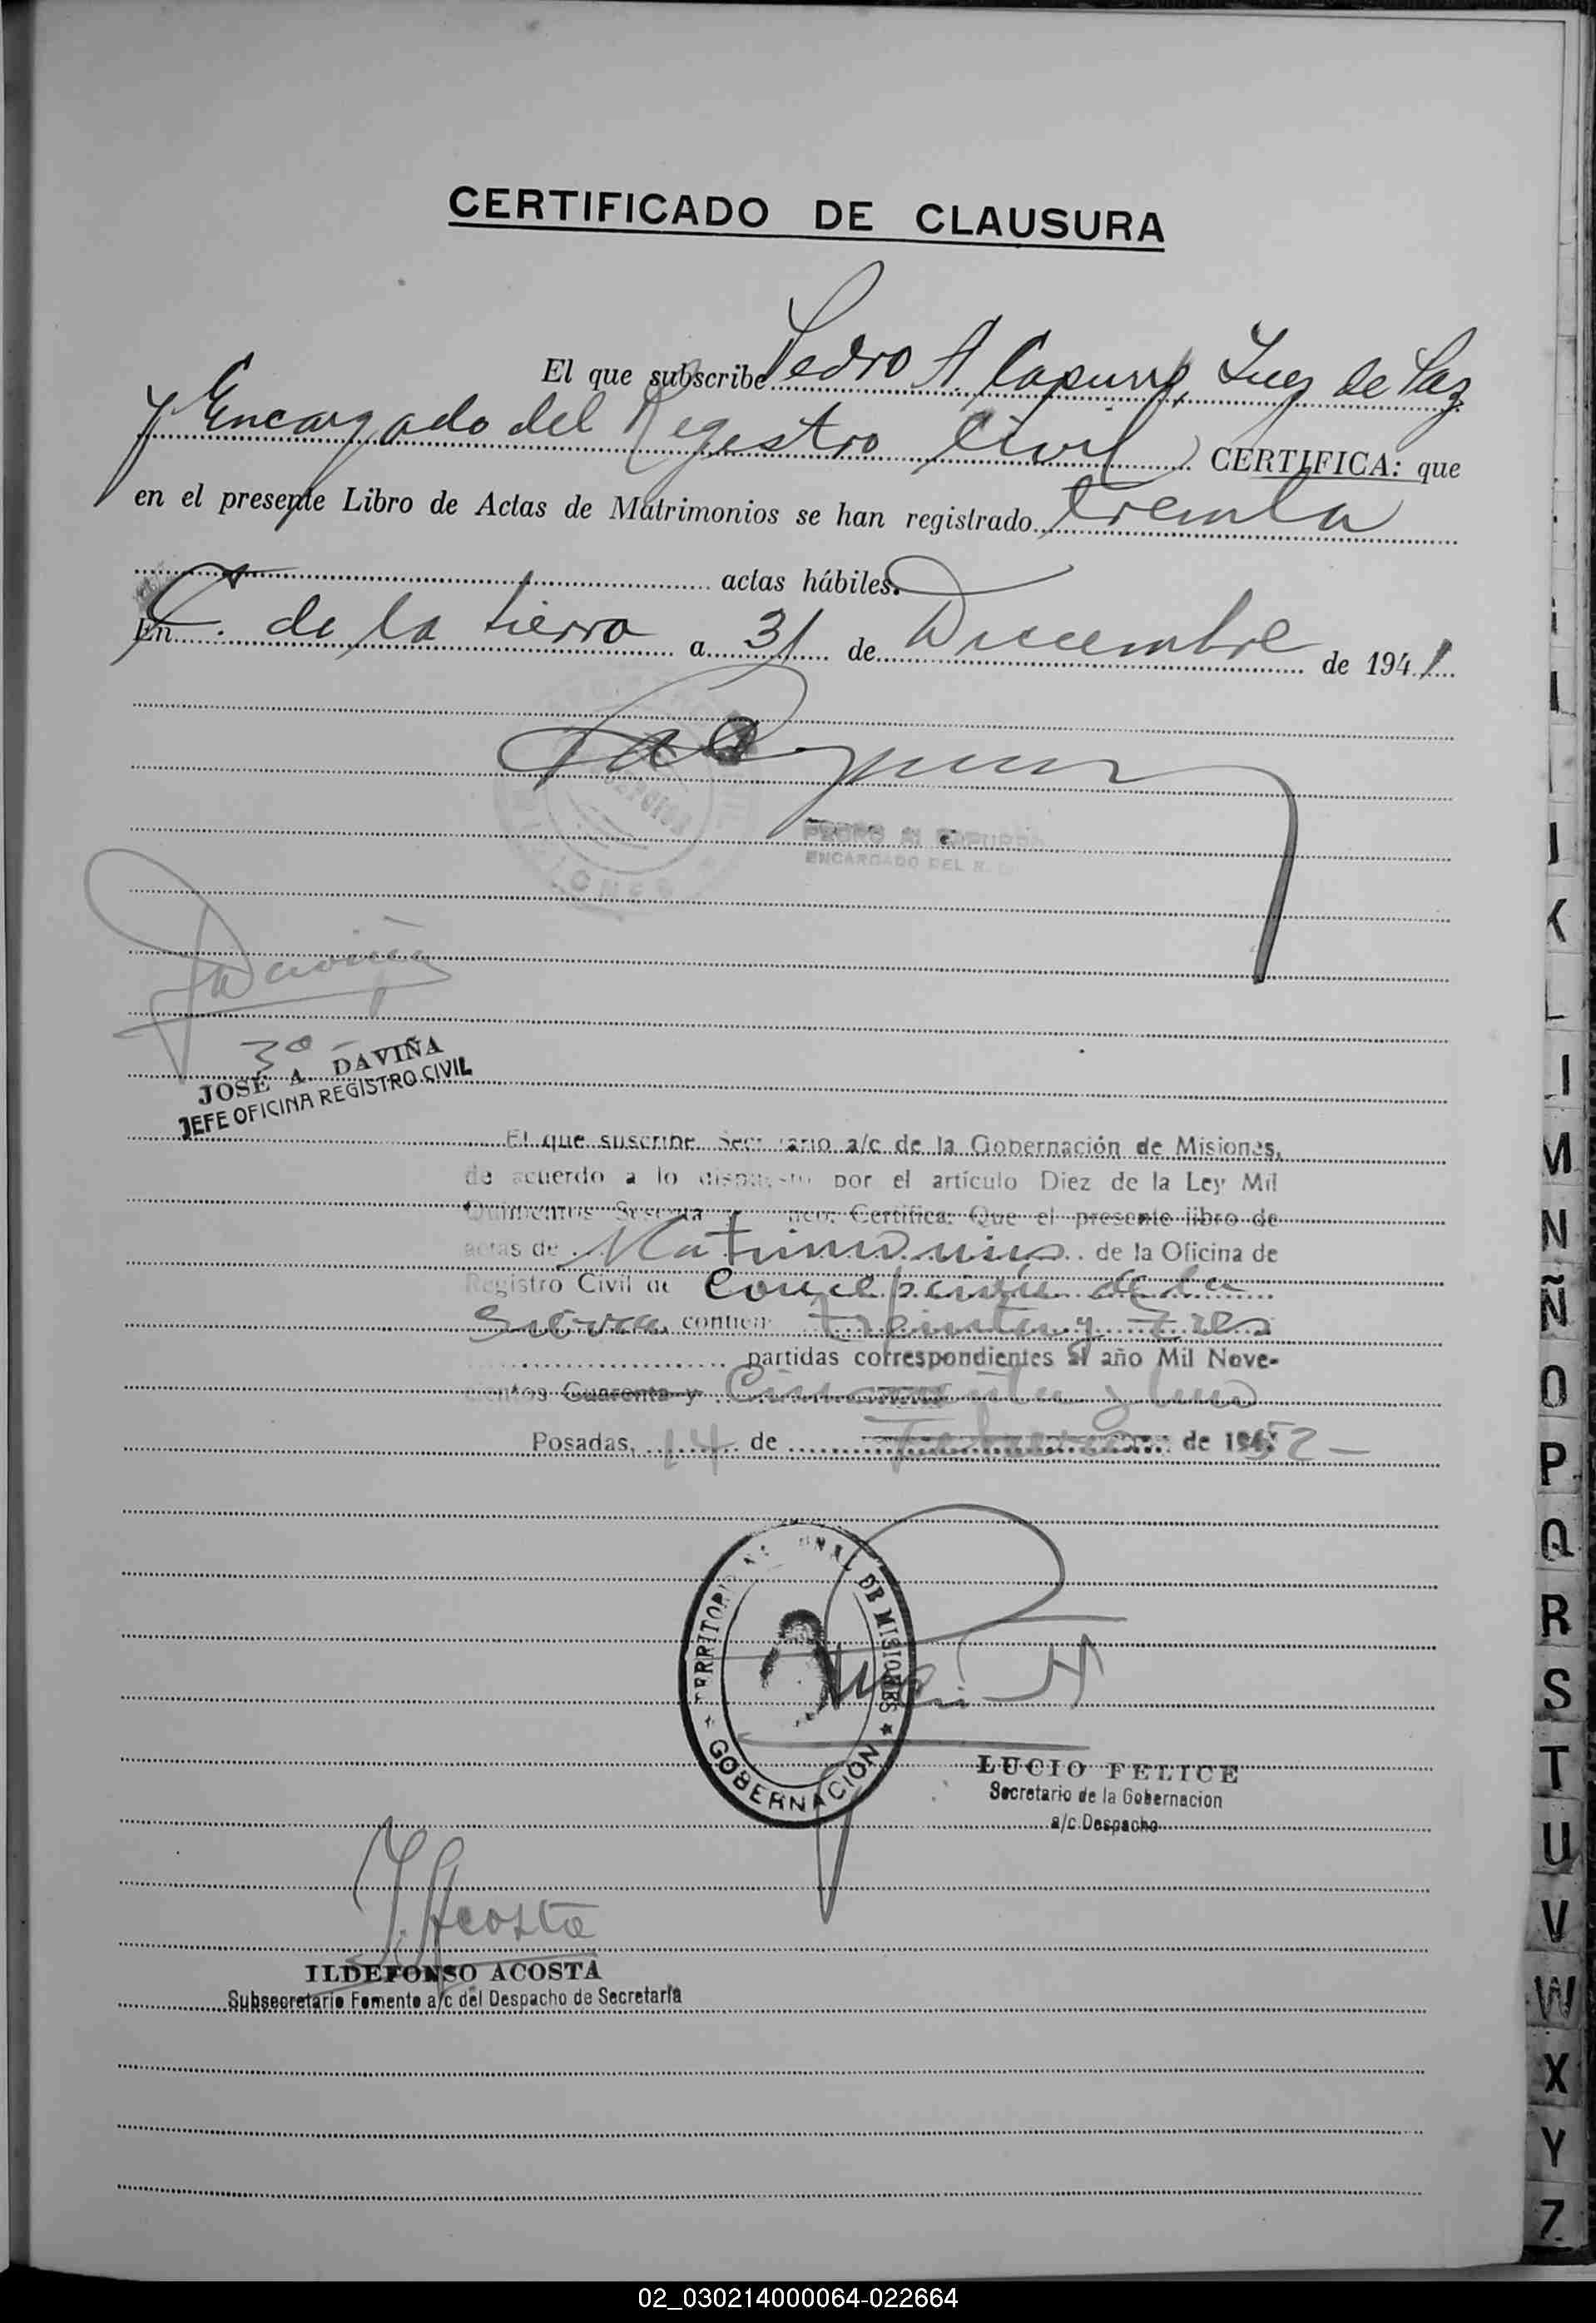 CERTIFICADO DE CLAUSURA
El que subscribe Pedro A. Capurro, Juez de Paz
y Encargado del Registro Civil CERTIFICA: que
en el presente Libro de Actas de Matrimonios se han registrado treinta
actas hábiles.
En C. de la Sierra a 31 de Diciembre de 1941
PEDRO A. CAPURRO
ENCARGADO DEL R. C.
JDaviña
3º
JOSÉ A. DAVIÑA
JEFE OFICINA REGISTRO CIVIL
El que suscribe Secretario a/c de la Gobernación de Misiones,
de acuerdo a lo dispuesto por el artículo Diez de la Ley Mil
Quinientos Sesenta y Certifica: Que el presente libro de
actas de Matrimonios de la Oficina de
Registro Civil de Concepción de la
Sierra contiene treinta y tres
partidas correspondientes al año Mil Nove-
cientos Cuarenta y Cincuenta y Uno
Posadas, 14 de Febrero de 1952
TERRITORIO NACIONAL DE MISIONES
GOBERNACIÓN
LUCIO FELICE
Secretario de la Gobernacion
a/c Despacho
I. Acosta
ILDEFONSO ACOSTA
Subsecretario Fomento a/c del Despacho de Secretaría
I
J
K
L
Ll
M
N
Ñ
O
P
Q
R
S
T
U
V
W
X
Y
Z
02_030214000064-022664